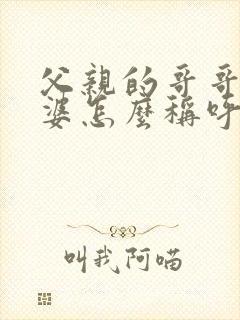 父親的哥哥
婆怎麼稱呼
叫我阿喵